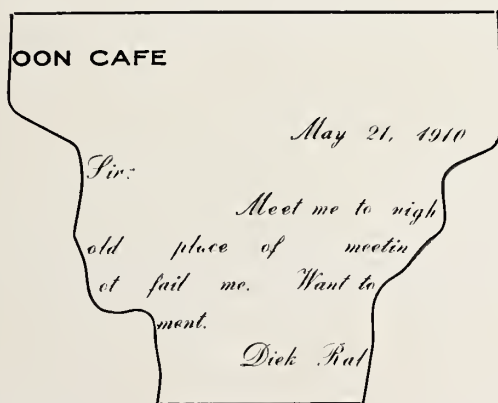 OON CAFE
May 21, 1910
Sir:
Meet me to nigh
old place of meetin
ot fail me. Want to
ment.
Dick Ral